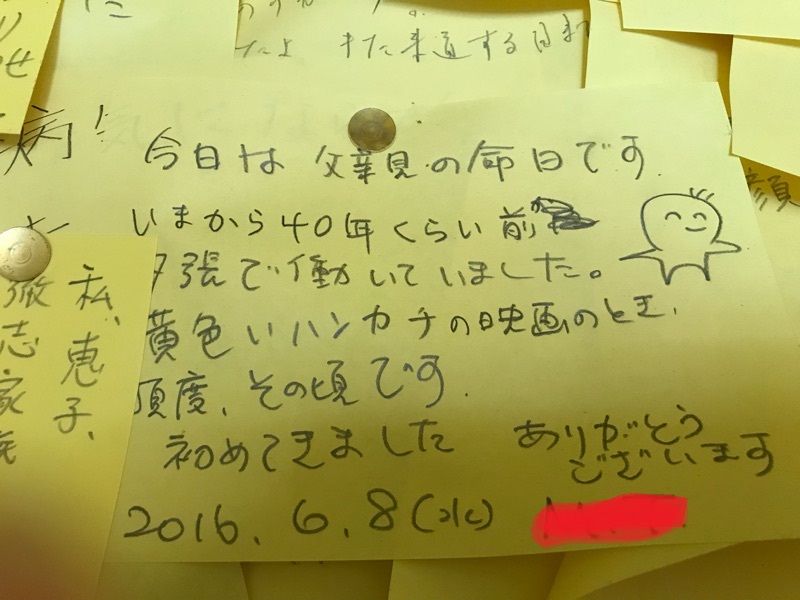 たよ また来道する日まで
病!
今日は 父 の命日です.
いまから40年くらい前
夕張で働いていました。
黄色いハンカチの映画のとき、
頂度、その頃です.
初めてきました
ありがとう
ございます
2016.6.8(水)
私、恵子、
志家
顔